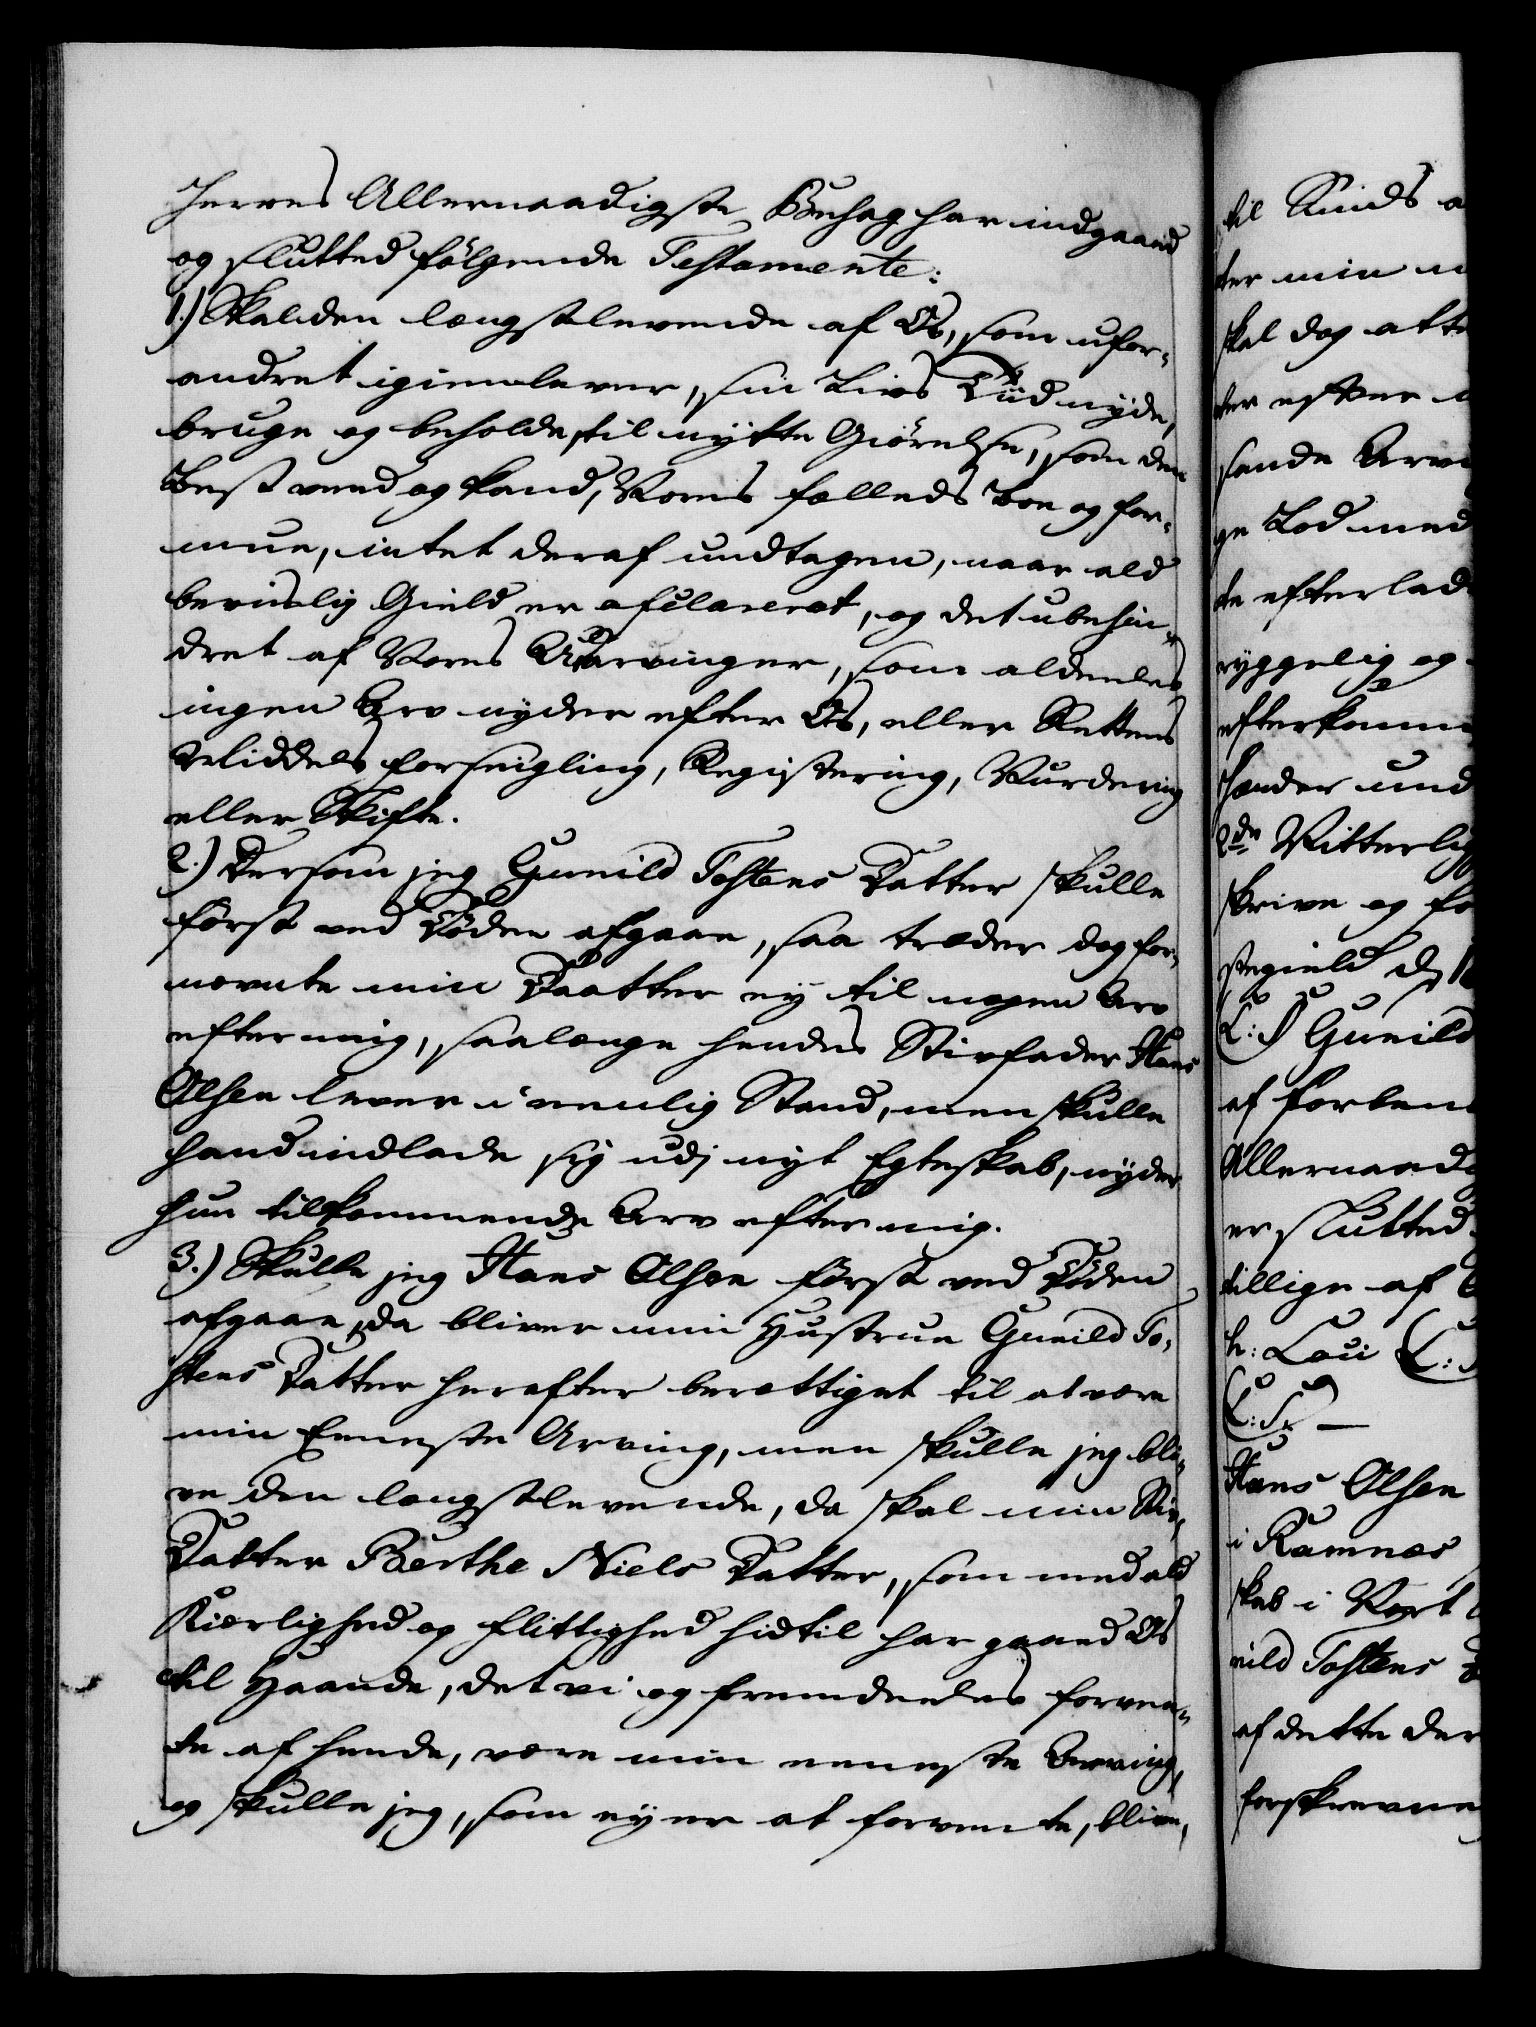 Herres Allernaadigste Behag har indgaaed
og slutted følgende Testamente:
1.) Skal den længstlevende af Os, som ufor-
andret igienlever, sin Livs Tiid nyde,
bruge og beholde, til nytte Giørelse, som den
best veed og kand, Vores fælleds Boe og for-
mue, intet deraf undtagen, naar ald
beviislig Gield er afclareret, og det ubehin-
dret af Vores Udarvinger, som aldeeles
ingen Arv nyder efter Os, eller Rettens
Middels forseigling, Registering, Vurdering
eller Skifte.
2.) Dersom jeg Gunild Tostens Datter skulle
først ved Døden afgaae, saa træder dog for-
nævnte min Daatter ey til nogen Arv
efter mig, saalænge hendes Stivfader Hans
Olsen lever i eenlig Stand, men skulle
hand indlade sig udj nyt Egteskab, nyder
hun tilkommende Arv efter mig.
3.) Skulle jeg Hans Olsen først ved Døden
afgaae, da bliver min Hustrue Gunild To-
stens Datter herefter berettiget til at være
min Eeneste Arving, men skulle jeg bli-
ve den længstlevende, da skal min Stiv-
Datter Berthe Niels Datter, som med ald
Kiærlighed og flittighed hidtil har gaaed Os
til Haande, det vi og fremdeeles forven-
te af hende, være min eeneste Arving,
og skulle jeg, som ey er at forvente, blive,
til Sinds a
ter min
skal dog atte
ter efter
sande Arvi
ge Lod med
te efterlad
ryggelig og
efterkomme
Hænder und
2de Vitterlig
skrive og fo
(L: S Gunild
af forben
Allernaad
er slutted
tillige af
h: Loui (L: S
(L: S.) —
Hans Olsen
i Ramnes
skab i Vort
nild Tostens
af dette der
forskrevne